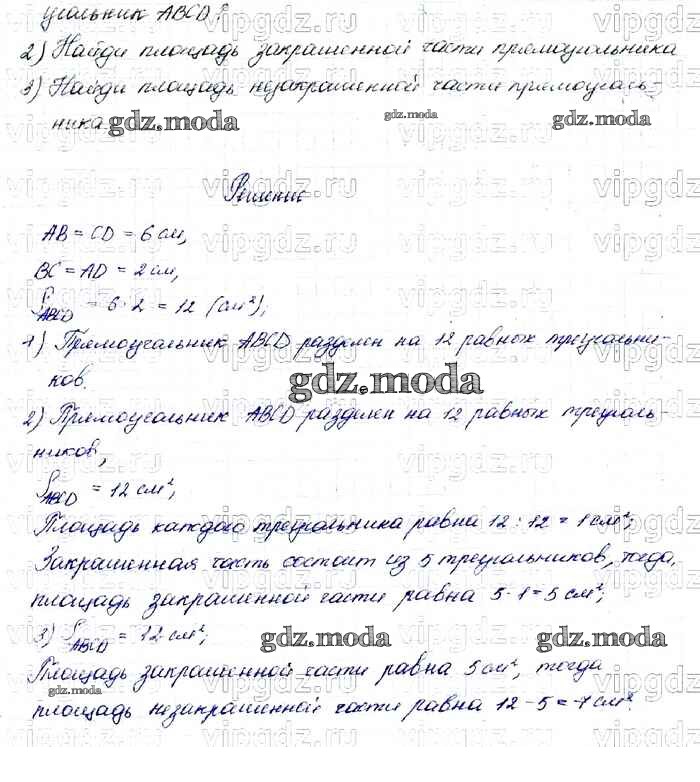 угольник ABCD?
2) Найди площадь закрашенной части прямоугольника
3) Найди площадь незакрашенной части прямоуголь-
ника.
gdz.moda
gdz.moda
gdz.moda
Решение
AB = CD = 6 см,
BC = AD = 2 см,
S ABCD = 6 · 2 = 12 (см²);
1) Прямоугольник ABCD разделен на 12 равных треугольни-
ков.
gdz.moda
2) Прямоугольник ABCD разделен на 12 равных треуголь-
ников,
S ABCD = 12 см²;
Площадь каждого треугольника равна 12 : 12 = 1 см²;
Закрашенная часть состоит из 5 треугольников, тогда,
площадь закрашенной части равна 5 · 1 = 5 см²;
3) S ABCD = 12 см²;
gdz.moda
gdz.moda
Площадь закрашенной части равна 5 см², тогда
gdz.moda
площадь незакрашенной части равна 12 - 5 = 7 см².